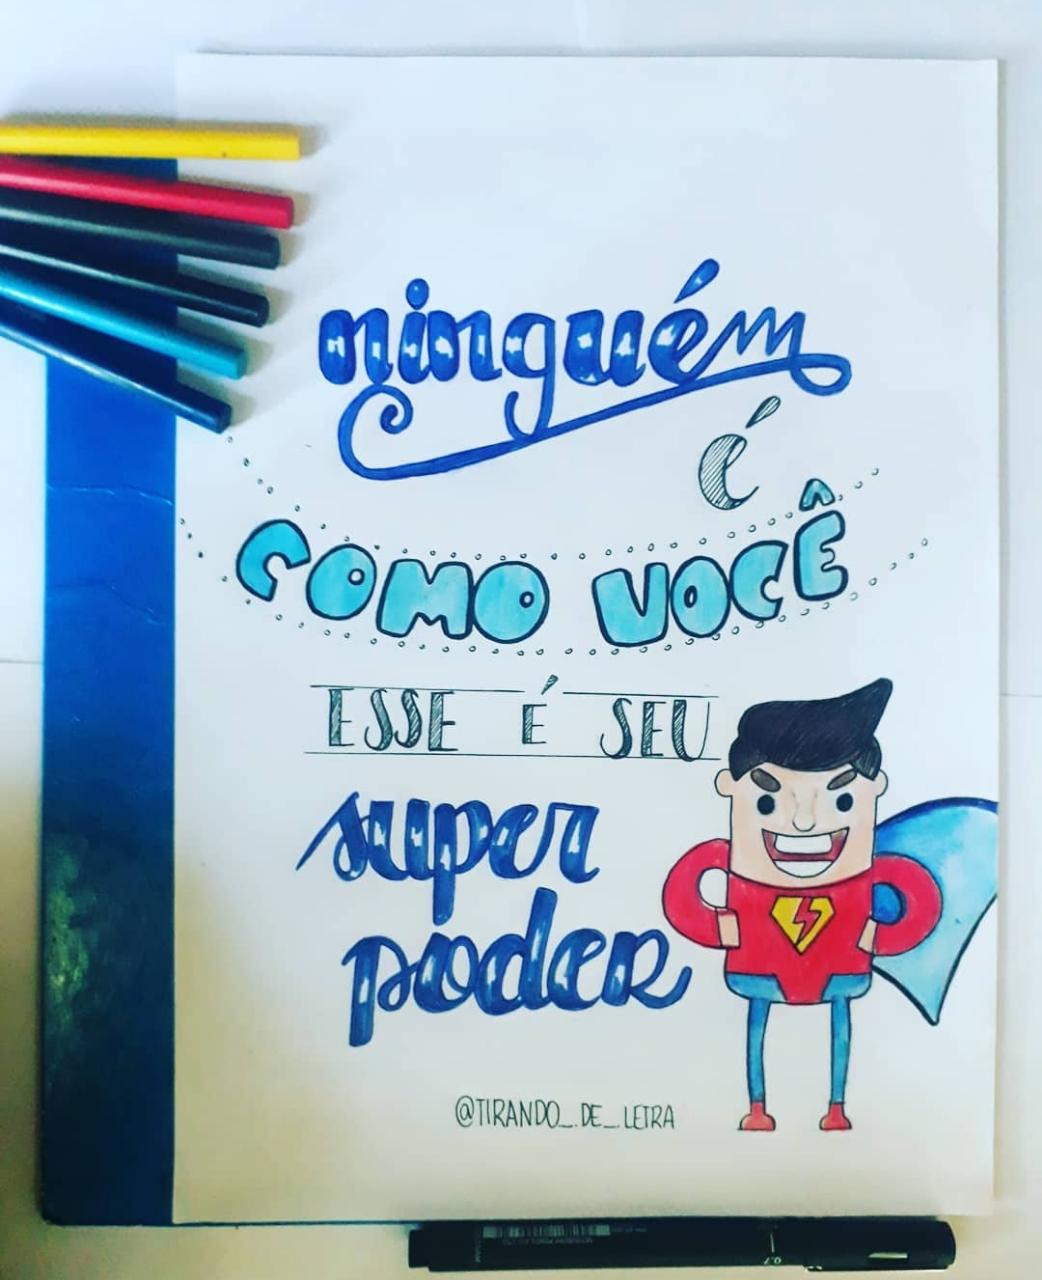 ninguém
é
COMO VOCÊ
ESSE É SEU
super
poder
@TIRANDO_.DE_.LETRA
0.7